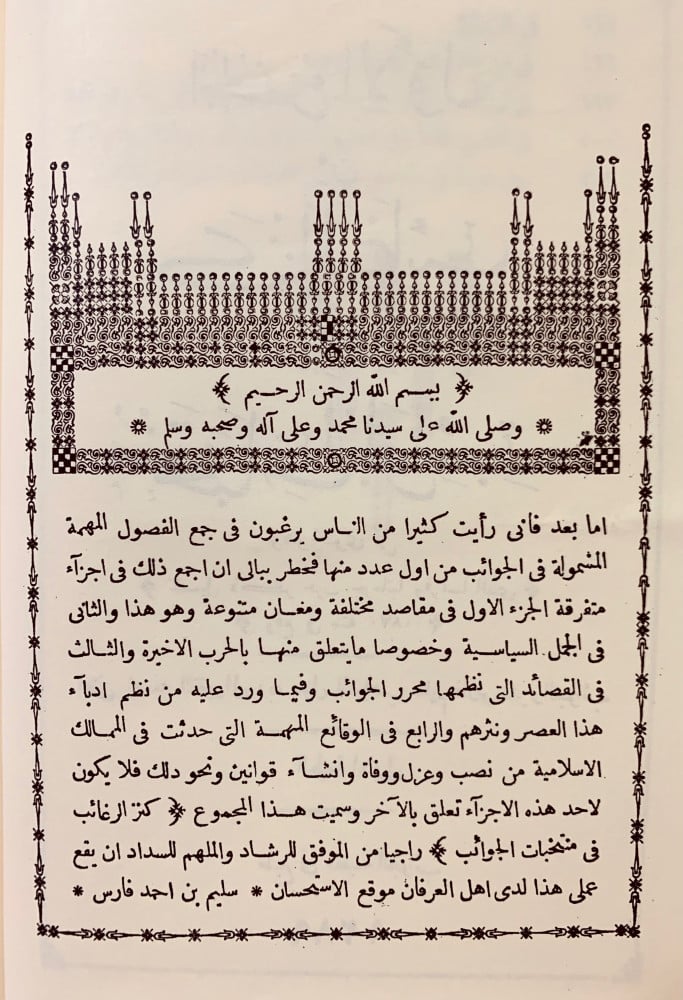 بسم الله الرحمن الرحيم
وصلى الله على سيدنا محمد وعلى آله وصحبه وسلم
اما بعد فانى رأيت كثيرا من الناس يرغبون فى جمع الفصول المهمة
المشمولة فى الجوائب من اول عدد منها فخطر ببالى ان اجمع ذلك فى اجزآء
متفرقة الجزء الاول فى مقاصد مختلفة ومعان متنوعة وهو هذا والثانى
فى الجمل السياسية وخصوصا مايتعلق منها بالحرب الاخيرة والثالث
فى القصائد التى نظمها محرر الجوائب وفيما ورد عليه من نظم ادبآء
هذا العصر ونثرهم والرابع فى الوقائع المهمة التى حدثت فى الممالك
الاسلامية من نصب وعزل ووفاة وانشآء قوانين ونحو دلك فلا يكون
لاحد هذه الاجزآء تعلق بالآخر وسميت هذا المجموع ﴿ كنز الرغائب
فى منتخبات الجوائب ﴾ راجيا من الموفق للرشاد والملهم للسداد ان يقع
عملى هذا لدى اهل العرفان موقع الاستحسان * سليم بن احمد فارس *